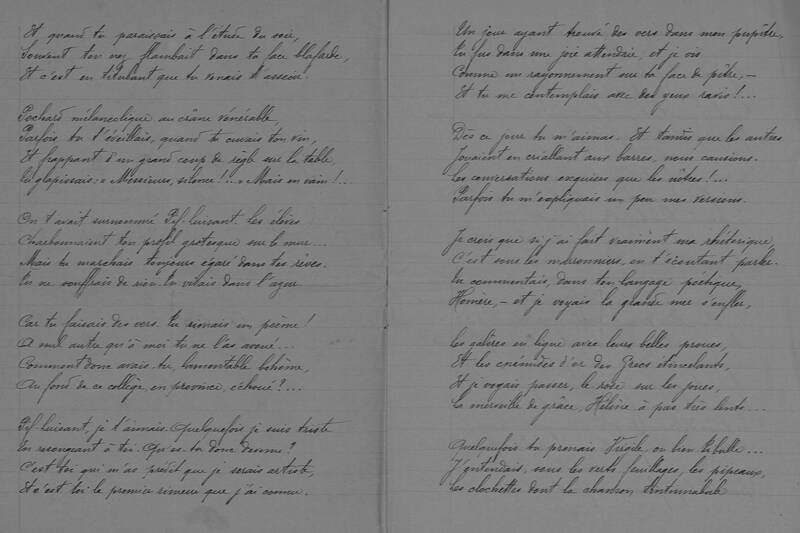 Et, quand tu paraissais à l'étude du soir,
Souvent ton nez flambait dans ta face blafarde,
Et c'est en titubant que tu venais t'asseoir.
Pochard mélancolique au crâne vénérable,
Parfois tu t'éveillais, quand tu cuvais ton vin,
Et frappant d'un grand coup de règle sur la table,
Tu glapissais: « Messieurs, silence!.. » Mais en vain!...
On t'avait surnommé Pif-luisant. Les élèves
Charbonnaient ton profil grotesque sur le mur...
Mais tu marchais toujours égaré dans tes rêves.
Tu ne souffrais de rien. Tu vivais dans l'azur.
Car tu faisais des vers. Tu rimais un poème!
A nul autre qu'à moi tu ne l'as avoué...
Comment donc avais-tu, lamentable bohème,
Au fond de ce collège, en province, échoué?...
Pif-luisant, je t'aimais. Quelquefois je suis triste
En resongeant à toi. Qu'es-tu donc devenu?
C'est toi qui m'as prédit que je serais artiste,
Et c'est toi le premier rimeur que j'ai connu.
Un jour ayant trouvé des vers dans mon pupitre,
Tu fus dans une joie attendrie, et je vis
Comme un rayonnement sur ta face de pitre,—
Et tu me contemplais avec des yeux ravis!...
Dès ce jour tu m'aimas. Et tandis que les autres
Jouaient en criaillant aux barres, nous causions.
Les conversations exquises que les nôtres!...
Parfois tu m'expliquais un peu mes versions.
Je crois que si j'ai fait vraiment ma rhétorique
C'est sous les marronniers, en t'écoutant parler.
Tu commentais, dans ton langage poétique,
Homère,— et je voyais la grande mer s'enfler,
Les galères en ligne avec leurs belles proues,
Et les cnémides d'or des Grecs étincelants,
Et je voyais passer, le rose sur les joues,
La merveille de grâce, Hélène à pas très lents...
Quelquefois tu prenais Virgile, ou bien Tibulle...
J'entendais, sous les verts feuillages, les pipeaux,
Les clochettes dont la chanson tintinnabule